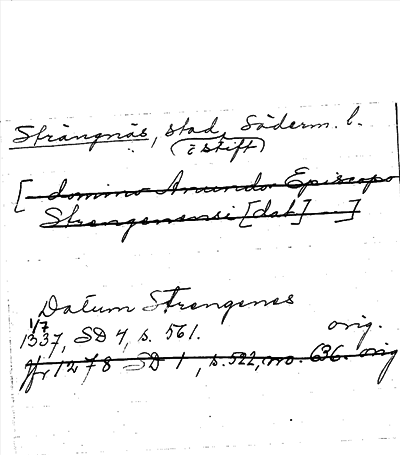 Strängnäs, stad, Söderm. l.
(i stift)
[— domino Anundo Episcopo
Strengenensi [dat] —]
Datum Strengenes
1/7
1337, SD 4, s. 561. orig.
1278 SD 1, s. 522, no. 636. orig